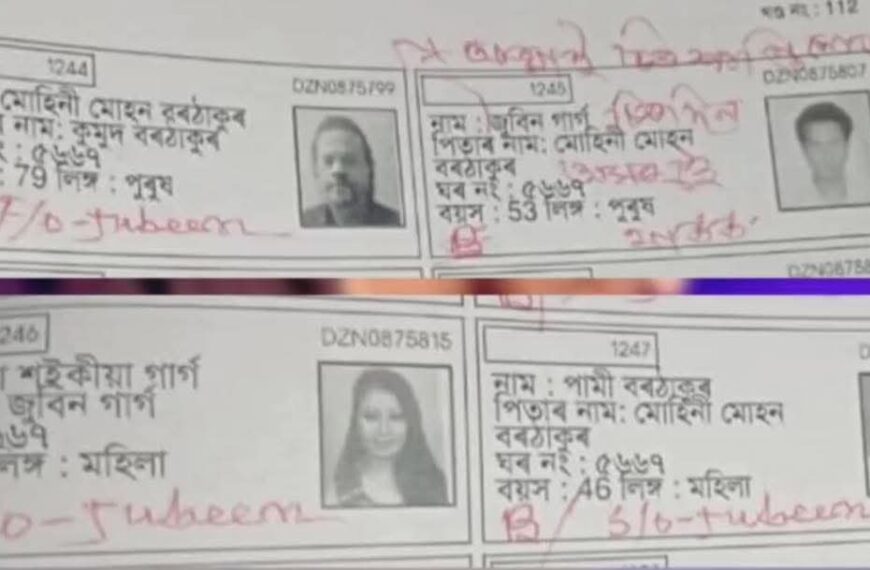 নং : 112
1244
DZN0875799
মোহিনী মোহন বৰঠাকুৰ
নাম: কুমুদ বৰঠাকুৰ
: ৫৬৬৭
: 79 লিঙ্গ : পুৰুষ
F/o - Jubeen
1245
DZN0875807
নাম : জুবিন গাৰ্গ
পিতাৰ নাম: মোহিনী মোহন
বৰঠাকুৰ
ঘৰ নং : ৫৬৬৭
বয়স : 53 লিঙ্গ : পুৰুষ
B
246
DZN0875815
শইকীয়া গাৰ্গ
জুবিন গাৰ্গ
৬৬৭
লিঙ্গ : মহিলা
o - Jubeen
1247
নাম : পামী বৰঠাকুৰ
পিতাৰ নাম: মোহিনী মোহন
বৰঠাকুৰ
ঘৰ নং : ৫৬৬৭
বয়স : 46 লিঙ্গ : মহিলা
B / S/o - Jubeen